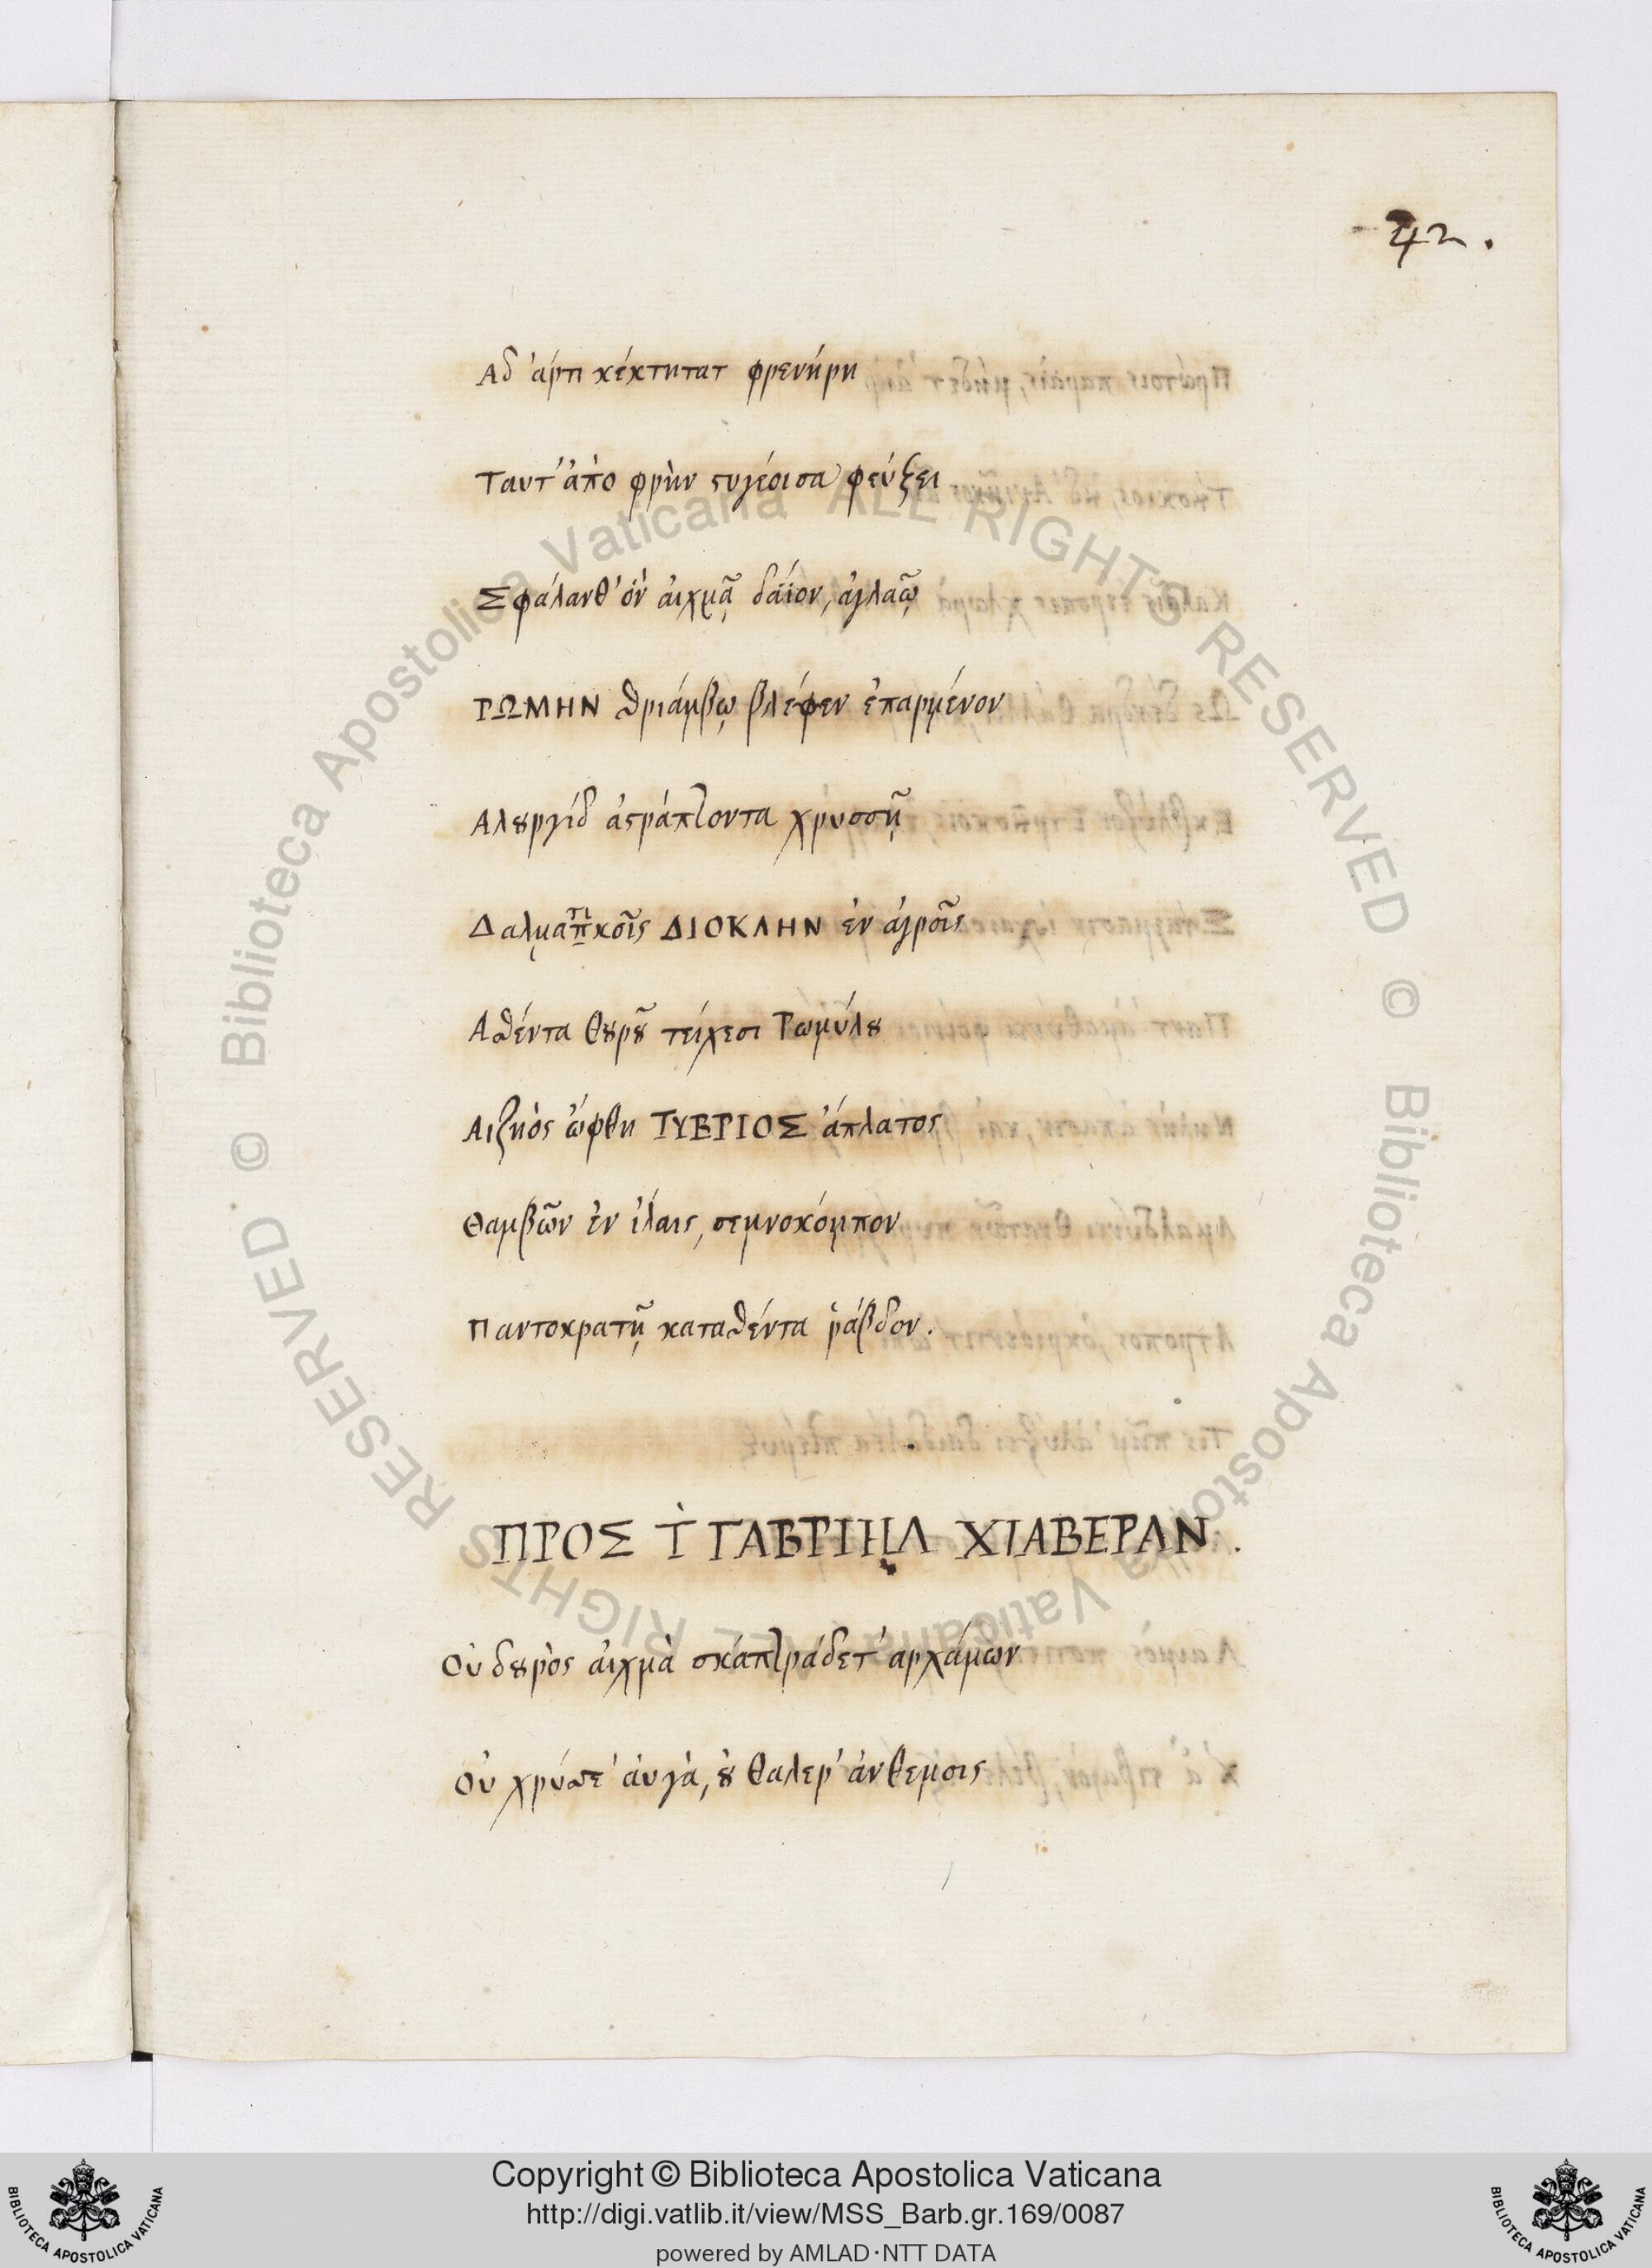 42.
Αδ' άρτι κέκτηται φρενήρη
Ταυτ' ἀπὸ φρὴν στυγέοισα φεύξει
Σφάλανθ' ὃν ἀιχμᾷ δάϊον, ἀγλαῷ
ΡΩΜΗΝ θριάμβῳ βλέφεν ἐπαρμένον
Αλουργίδ ἀστράπτοντα χρυσσῇ
Δαλματικοῖς ΔΙΟΚΛΗΝ ἐν ἀγροῖς
Αθέντα θουροῦ τείχεσι Ρωμύλου
Αιζηὸς ὤφθη ΤΥΒΡΙΟΣ ἄπλατος
Θαμβῶν ἐν ἰλαις, σεμνοκόμπον
Παντοκρατῆ καταθέντα ῥάβδον.
ΠΡΟΣ Τ̀ ΓΑΒΡΙΗΛ ΧΙΑΒΕΡΑΝ.
Οὐ δουρὸς ἀιχμὰ σκάπτρά δετ' αρχάμων
Οὐ χρύσε' ἀυγὰ, οὐ θαλερ' ἀνθεμσις
Copyright © Biblioteca Apostolica Vaticana
http://digi.vatlib.it/view/MSS_Barb.gr.169/0087
powered by AMLAD·NTT DATA
BIBLIOTECA APOSTOLICA VATICANA
BIBLIOTECA APOSTOLICA VATICANA
© Biblioteca Apostolica Vaticana ALL RIGHTS RESERVED © Biblioteca Apostolica Vaticana ALL RIGHTS RESERVED